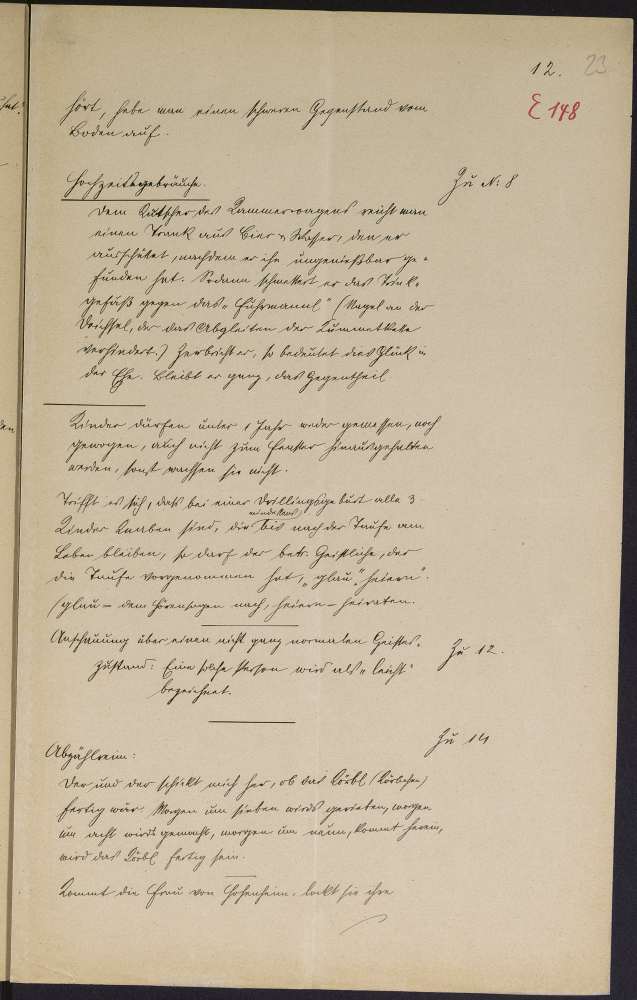 12. 23
E 148
hört, hebe man einen schweren Gegenstand vom
Boden auf.
Hochzeitsgebräuche.
Zu N: 8
Dem Kutscher des Kammerwagens reicht man
einen Trank aus Bier u. Wasser, den er
ausschüttet, nachdem er ihn ungenießbar ge-
funden hat. Sodann schmettert er das Trink-
gefäß gegen das "Fuhrmannl" (Nagel an der
Deichsel, der das Abgleiten der Kummetkette
verhindert.) Zerbricht er, so bedeutet dies Glück in
der Ehe. Bleibt er ganz, das Gegentheil
Kinder dürfen unter 1 Jahr weder gemessen, noch
gewogen, auch nicht zum Fenster hinausgehalten
werden, sonst wachsen sie nicht.
Trifft es sich, daß bei einer Drillingsgeburt alle 3
Kinder Knaben sind, die mindestens bis nach der Taufe am
Leben bleiben, so darf der betr. Geistliche, der
die Taufe vorgenommen hat, "glau" "heiern".
(glau = dem Hörensagen nach, heiern = heiraten.
Anschauung über einen nicht ganz normalen Geistes-
Zu 12.
zustand: Eine solche Person wird als "leicht"
bezeichnet.
Zu 14
Abzählreim:
Der und der schickt mich her, ob das Körbl (Körbchen)
fertig wär. Morgen um sieben wirds gerieben, morgen
um acht wirds gemacht, morgen um neun, kommt herein,
wird das Körbl fertig sein.
Kommt die Frau von Hohenheim, lockt sie ihre